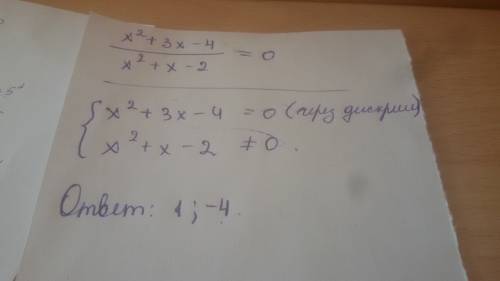 x² + 3x - 4
x² + x - 2
= 0
{ x² + 3x - 4 = 0 (через дискрим)
x² + x - 2 ≠ 0.
Ответ: 1; -4.